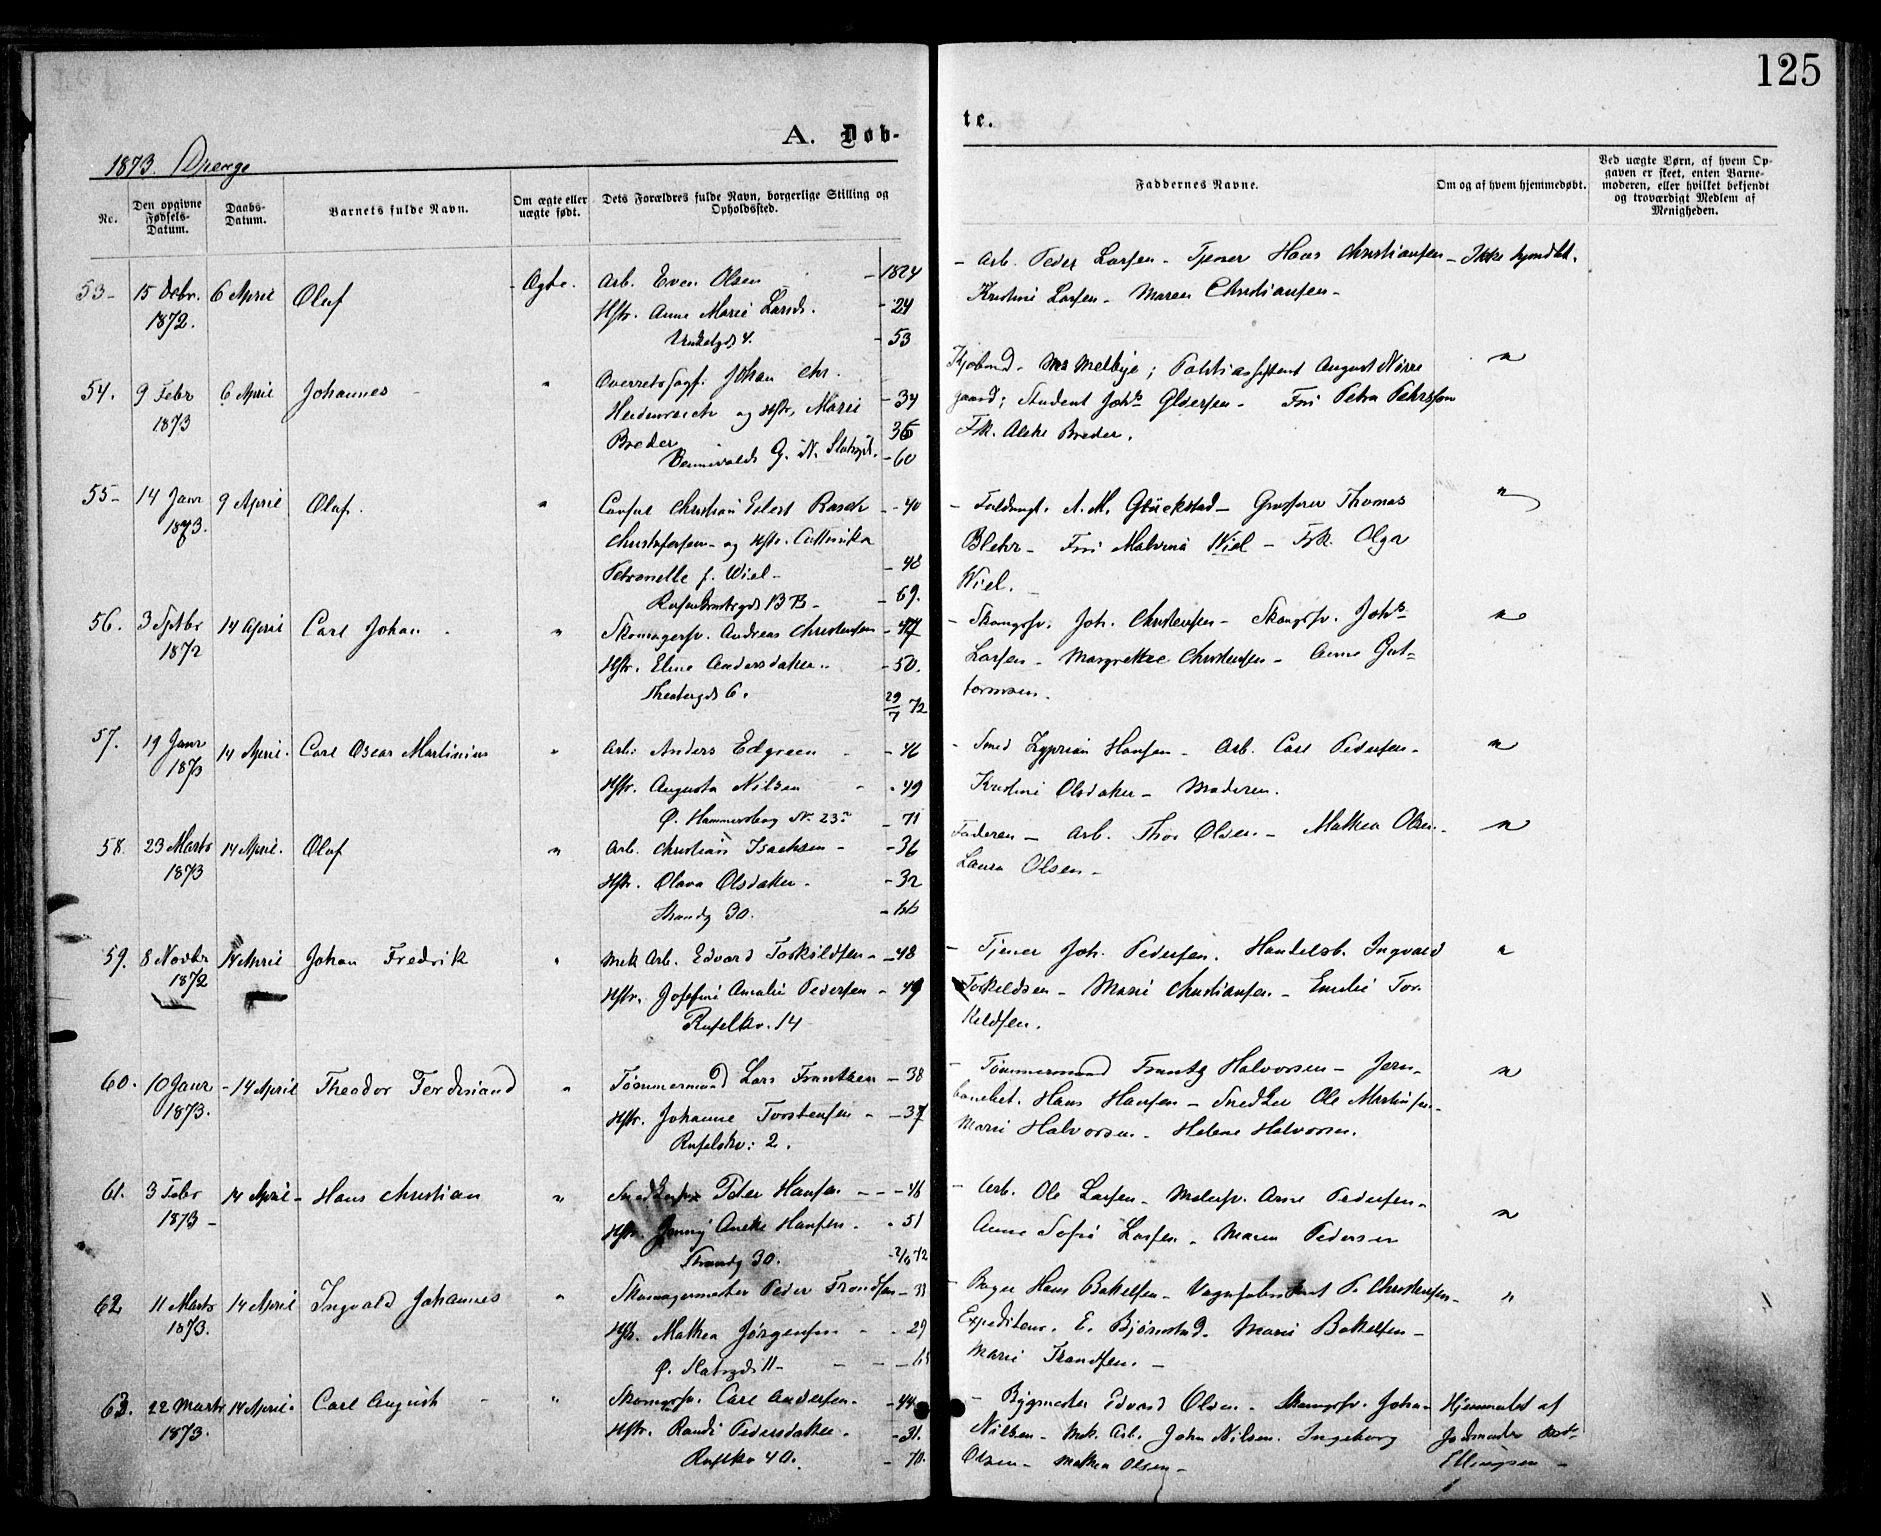 125
A. Døb-
te.
1873. Drenge
No.
Den opgivne Fødsels-Datum.
Daabs-Datum.
Barnets fulde Navn.
Om ægte eller uægte født.
Dets Forældres fulde Navn, borgerlige Stilling og Opholdssted.
Faddernes Navne.
Om og af hvem hjemmedøbt.
Ved uægte Børn, af hvem Opgaven er skeet, enten Barnemoderen, eller hvilket bekjendt og troværdigt Medlem af Menigheden.
53- 15 Octbr. 6 April Oluf Ægte. Arb. Even Olsen - 1824
1872. Hstr. Anne Marie Larsd. - 24
4. - 53
- Arb. Peder Larsen - Tjener Hans Christiansen - Ikke hjmdbt.
Kristine Larsen - Maren Christiansen -
54. 9 Febr 6 April Johannes " Overretssagf. Johan Chr.
1873 Heidenreich og Hstr. Marie - 34
Breder 36
G. N. Slotsgd. - 60
Kjøbmd. Melbye; Politiassistent August Nørre "
gaard; Student Johs Olsersen - Fru Petra Pehrsson
Frk. Breder.
55- 14 Janr 9 April Olaf. " Consul Christian Eilert Rasch - 40
1873. Christofersen - og Hstr.
Petronelle f. Wiel - - 48
13 B - - 69.
- Fuldmgt. A. M. Glückstad - Grosserer Thomas "
Blehr - Fru Malvina Wiel - Frk. Olga
Wiel.
56. 3 Septbr 14 April Carl Johan " Skomagersv. Andreas Christensen - 47
1872 Hstr. Eline Andersdatter. - 50.
Theatergd 6. 29/7 72
- Skomgrsv. Joh. Christensen - Skomgrsv. Johs "
Larsen - Margrethe Christensen - Anne Gut-
tormsen.
57. 19 Janr 14 April. Carl Oscar Martinius " Arb. Anders Edgreen - 46
1873 Hstr. Augusta Nilsen - 49
Ø. Hammersborg N. 23 - 71
- Smed Zyprian Hansen - Arb. Carl Pedersen - "
Kristine Olsdatter - Moderen.
58. 23 Marts 14 April. Oluf " Arb. Christian Isachsen - - 36
1873 Hstr. Olava Olsdatter. - 32
Strandg 30. - 66
Faderen - Arb. Thor Olsen - Mathea Olsen - "
Laura Olsen -
59. 8 Novbr 14 April Johan Fredrik " Mek Arb. Edvard Torkildsen - 48
1872 Hstr. Josefine Amalie Pedersen - 49
14
- Tjener Joh. Pedersen. Handelsb. Ingvald "
Torkildsen - Marie Christiansen - Emilie Tor-
kildsen.
60. 10 Janr - 14 April Theodor Ferdinand " Tømmermand Lars Frantzen - 38
1873. Hstr. Johanne Torstensen - - 37
2.
- Tømmermand Frantz Halvorsen - Jern- "
banebet. Hans Hansen - Snedker Ole Martinsen -
Marie Halvorsen - Helene Halvorsen.
61. 3 Febr 14 April - Hans Christian " Peter Hansen - - - 46
1873 - Hstr. Jenny Hansen. - 51
Strandg 30. 72
- Arb. Ole Larsen - Malersv. Arne Pedersen - "
Anne Sofie Larsen - Maren Pedersen
62 11 Marts 14 April Ingvald Johannes " Skomagermester Peder Trondsen - 33
1873. Hstr. Mathea Jørgensen - - 29
Ø. Slotsgd 11 -
- Bager Hans Bottelsen - Vognfabrikant P. Christensen - "
Expediteur. E. Bjørnstad - Marie Bottelsen -
Marie Trondsen. -
63. 22 Marts 14 April. Carl August " Skomgrsv. Carl Andersen. - 44
1873. Hstr. Randi Pedersdatter. - 31.
40. - 70.
- Bygmester Edvard Olsen - Skomgrsv. Johan Hjemmedbt af
Nilsen - Mek. Arb. John Nilsen. Ingeborg Jordmoder
Olsen - Mathea Olsen - Ellingsen -